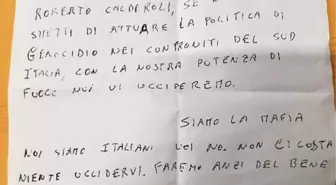 ROBERTO CALDEROLI, SE N
SMETTI DI ATTUARE LA POLITICA DI
GENOCIDIO NEI CONFRONTI DEL SUD
ITALIA, CON LA NOSTRA POTENZA DI
FUOCO NOI VI UCCIDEREMO.
SIAMO LA MAFIA
NOI SIAMO ITALIANI VOI NO. NON CI COSTA
NIENTE UCCIDERVI. FAREMO ANZI DEL BENE